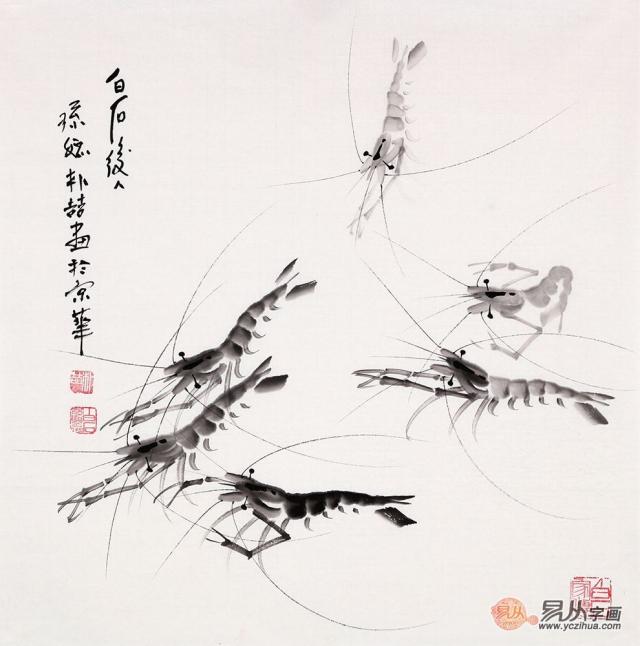 白石後人
孫媳朴喆畫於京華
易从
易从字画
www.yczihua.com